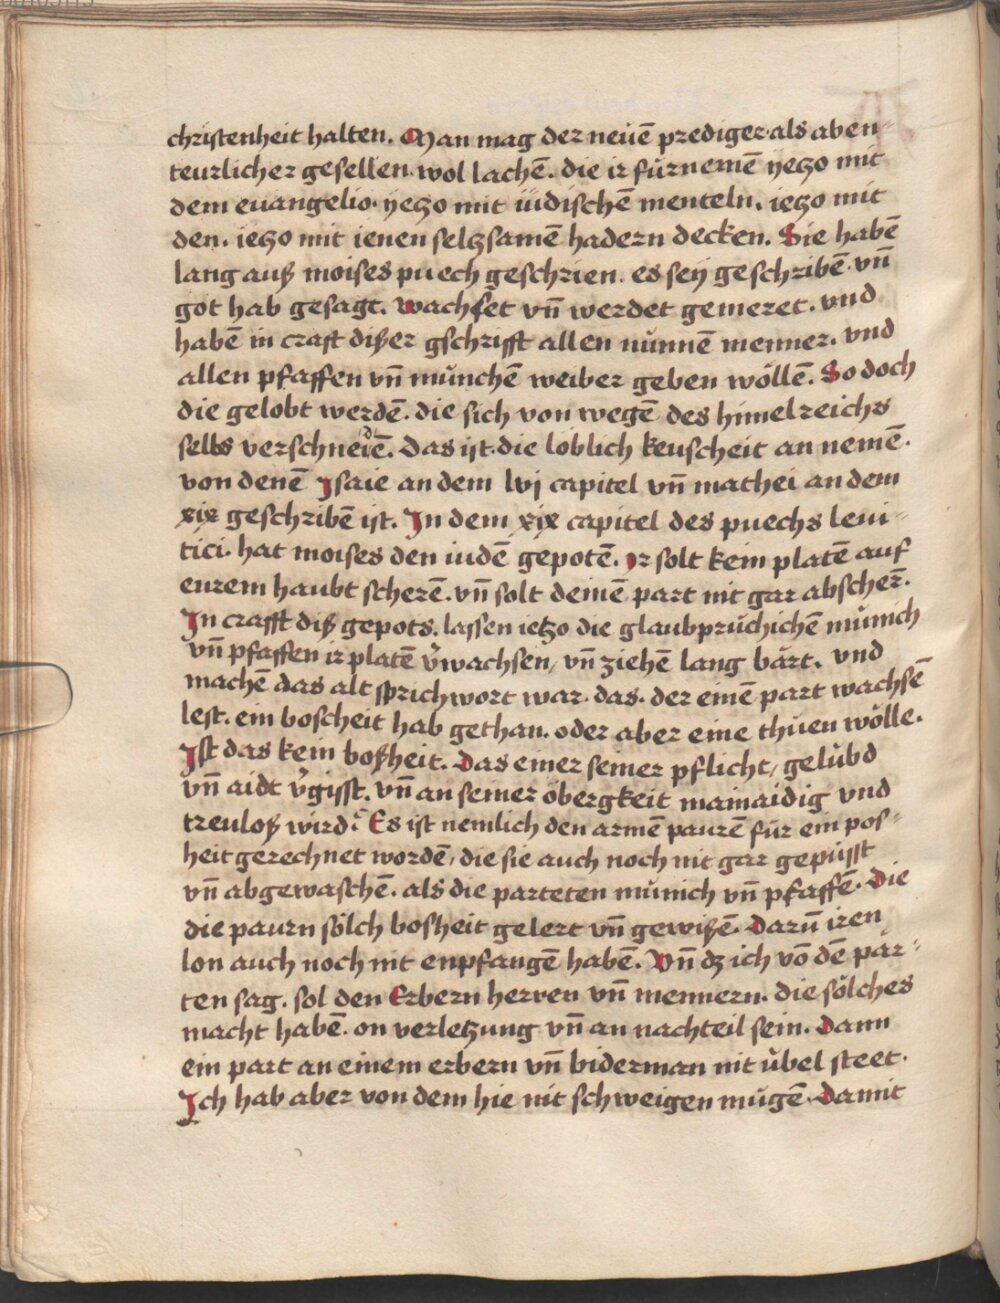 christenheit halten. Man mag der neuē prediger als aben-
teurlicher gesellen wol lachē. die ir fürnemē yeczo mit
dem euangelio. yeczo mit iüdischē menteln. ieczo mit
den. ieczo mit ienen selczsamē hadern decken. Sie habē
lang auß moises puech geschrien. es sey geschribē. vn̄
got hab gesagt. wachset vn̄ werdet gemeret. vnd
habē in craft dißer gschrifft allen nünnē menner. vnd
allen pfaffen vn̄ münchē weiber geben wöllē. So doch
die gelobt werdē. die sich von wegē des himelreichs
selbs verschneidē. das ist die loblich keuscheit an nemē.
von denē Isaie an dem lvj capitel vn̄ mathei an dem
xix geschribē ist. In dem xix capitel des puechs leui-
tici. hat moises den iudē gepotē. Ir solt kein platē auf
eurem haubt scherē. vn̄ solt deinē part nit gar abscherē.
In crafft diß gepots. lassen ietzo die glaubprüchichē münich
vn̄ pfaffen ir platē v̄wachsen, vn̄ ziehē lang bärt. vnd
machē das alt sprichwort war. das. der einē part wachsē
lest. ein boscheit hab gethan. oder aber eine thuen wölle.
Ist das kein boßheit. Das einer seiner pflicht, gelübd
vn̄ aidt v̄gisst. vn̄ an seiner öbergkeit mainaidig vnd
treuloß wird? Es ist nemlich den armē paurē für ein pos-
heit gerechnet wordē, die sie auch noch nit gar gepüsst
vn̄ abgewaschē. als die parteten münich vn̄ pfaffē. Die
die paurn sölch bosheit gelert vn̄ gewißē. Darū iren
lon auch noch nit enpfangē habē. Vn̄ dz ich vō dē pär-
ten sag. sol den Erbern herren vn̄ mennern. die sölches
macht habē. on verletzung vn̄ an nachteil sein. Dann
ein part an einem erbern vn̄ biderman nit übel steet.
Ich hab aber von dem hie nit schweigen mügē. Damit